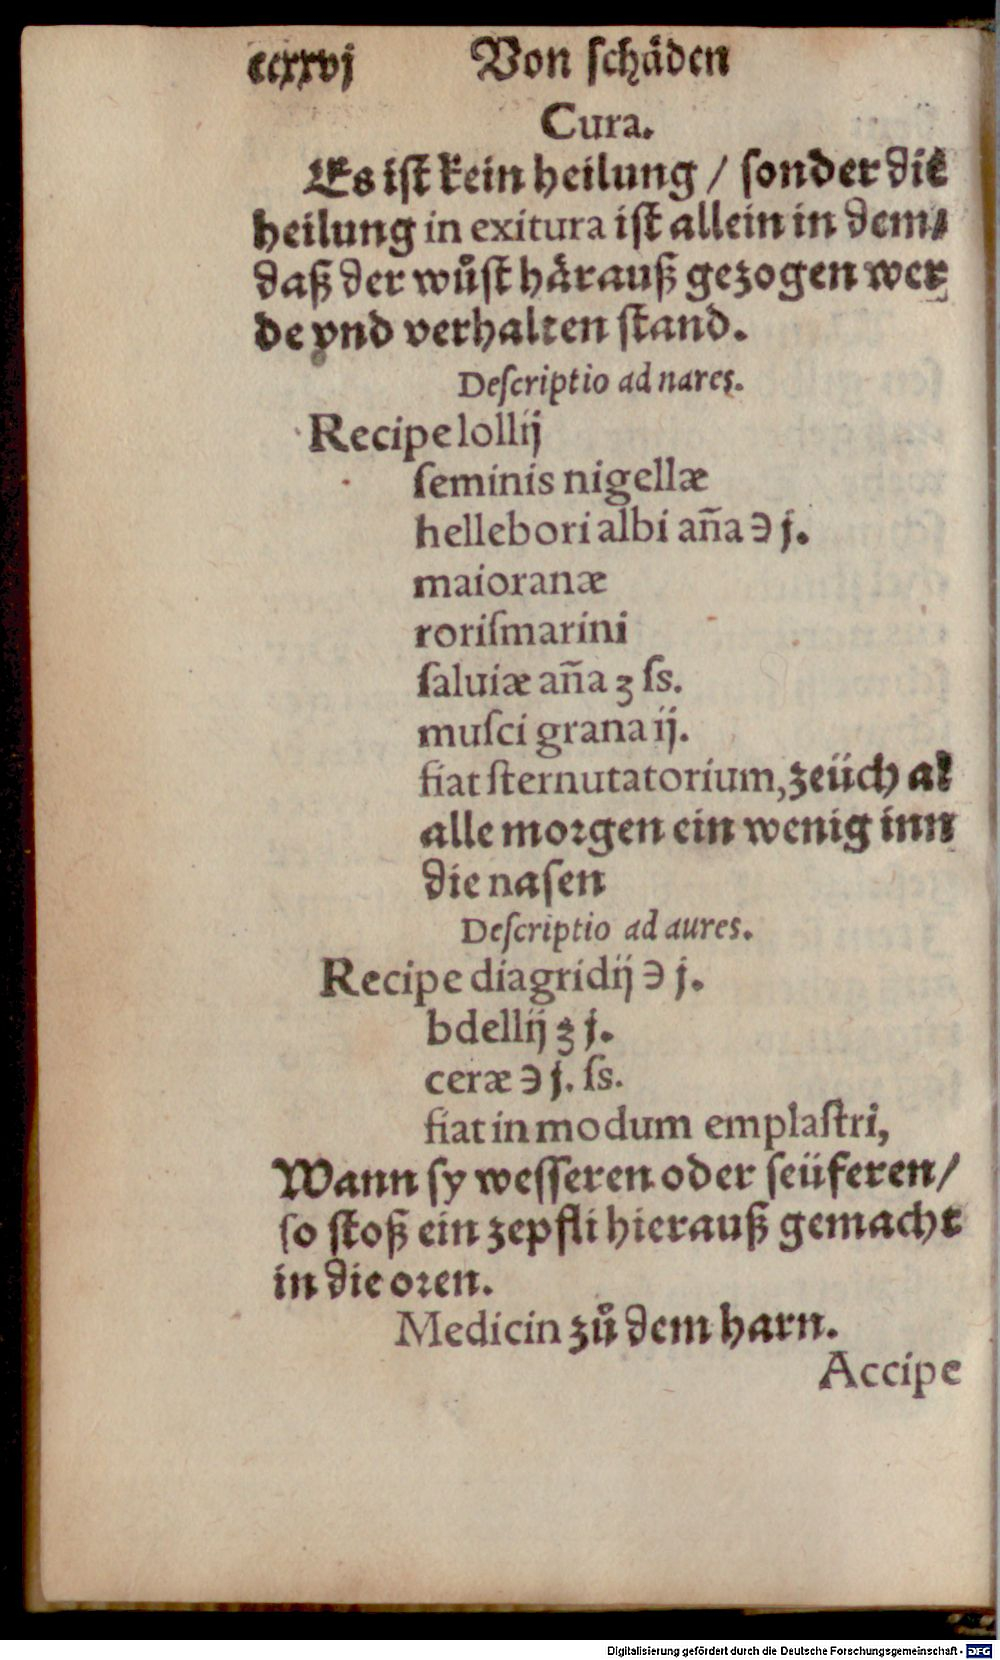 ccxxvj Von schäden
Cura.
Es ist kein heilung / sonder die
heilung in exitura ist allein in dem/
daß der wůst härauß gezogen wer
de vnd verhalten stand.
Deſcriptio ad nares.
Recipe lollij
ſeminis nigellæ
hellebori albi aña ℈ j.
maioranæ
roriſmarini
ſaluiæ aña ʒ ſs.
muſci grana ij.
fiat sternutatorium, zeüch al
alle morgen ein wenig inn
die nasen
Deſcriptio ad aures.
Recipe diagridij ℈ j.
bdellij ʒ j.
ceræ ℈ j. ſs.
fiat in modum emplaſtri,
Wann sy wesseren oder seüferen/
so stoß ein zepfli hierauß gemacht
in die oren.
Medicin zů dem harn.
Accipe
Digitalisierung gefördert durch die Deutsche Forschungsgemeinschaft - DFG